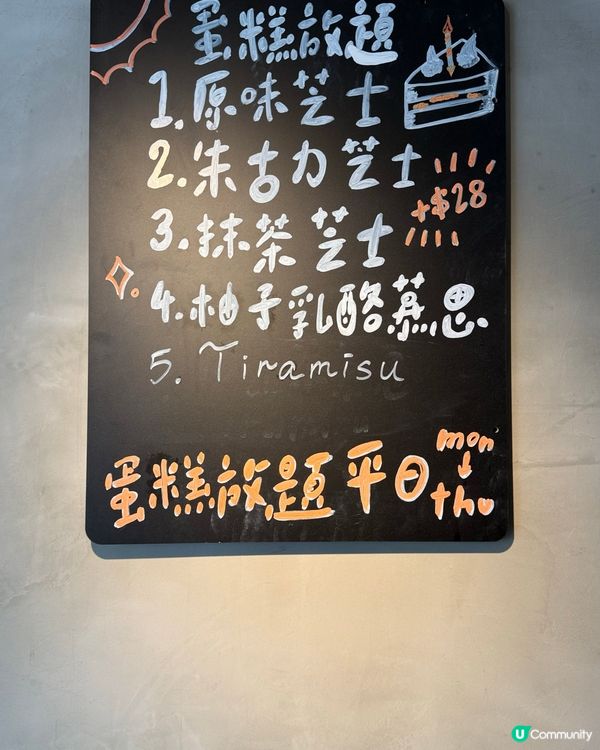 蛋糕放題
1. 原味芝士
2. 朱古力芝士
+$28
3. 抹茶芝士
4. 柚子乳酪慕思
5. Tiramisu
蛋糕放題平日 mon
↓
thu
U Community